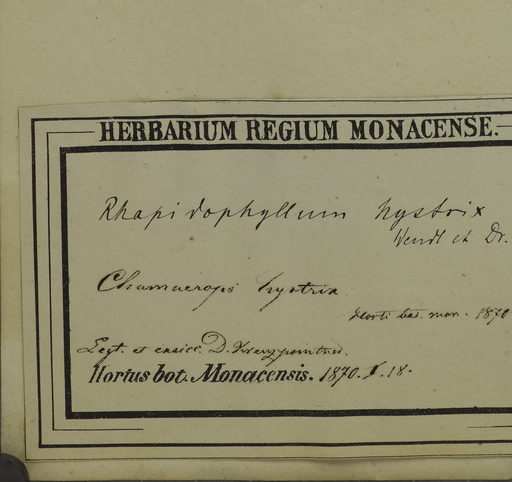 HERBARIUM REGIUM MONACENSE.
Rhapidophyllum hystrix
Wendl et Dr.
Chamaerops hystrix
Horti bot. mon. 1870
Legt. et exsicc. D. Kreuzpointner.
Hortus bot. Monacensis. 1870. I. 18.